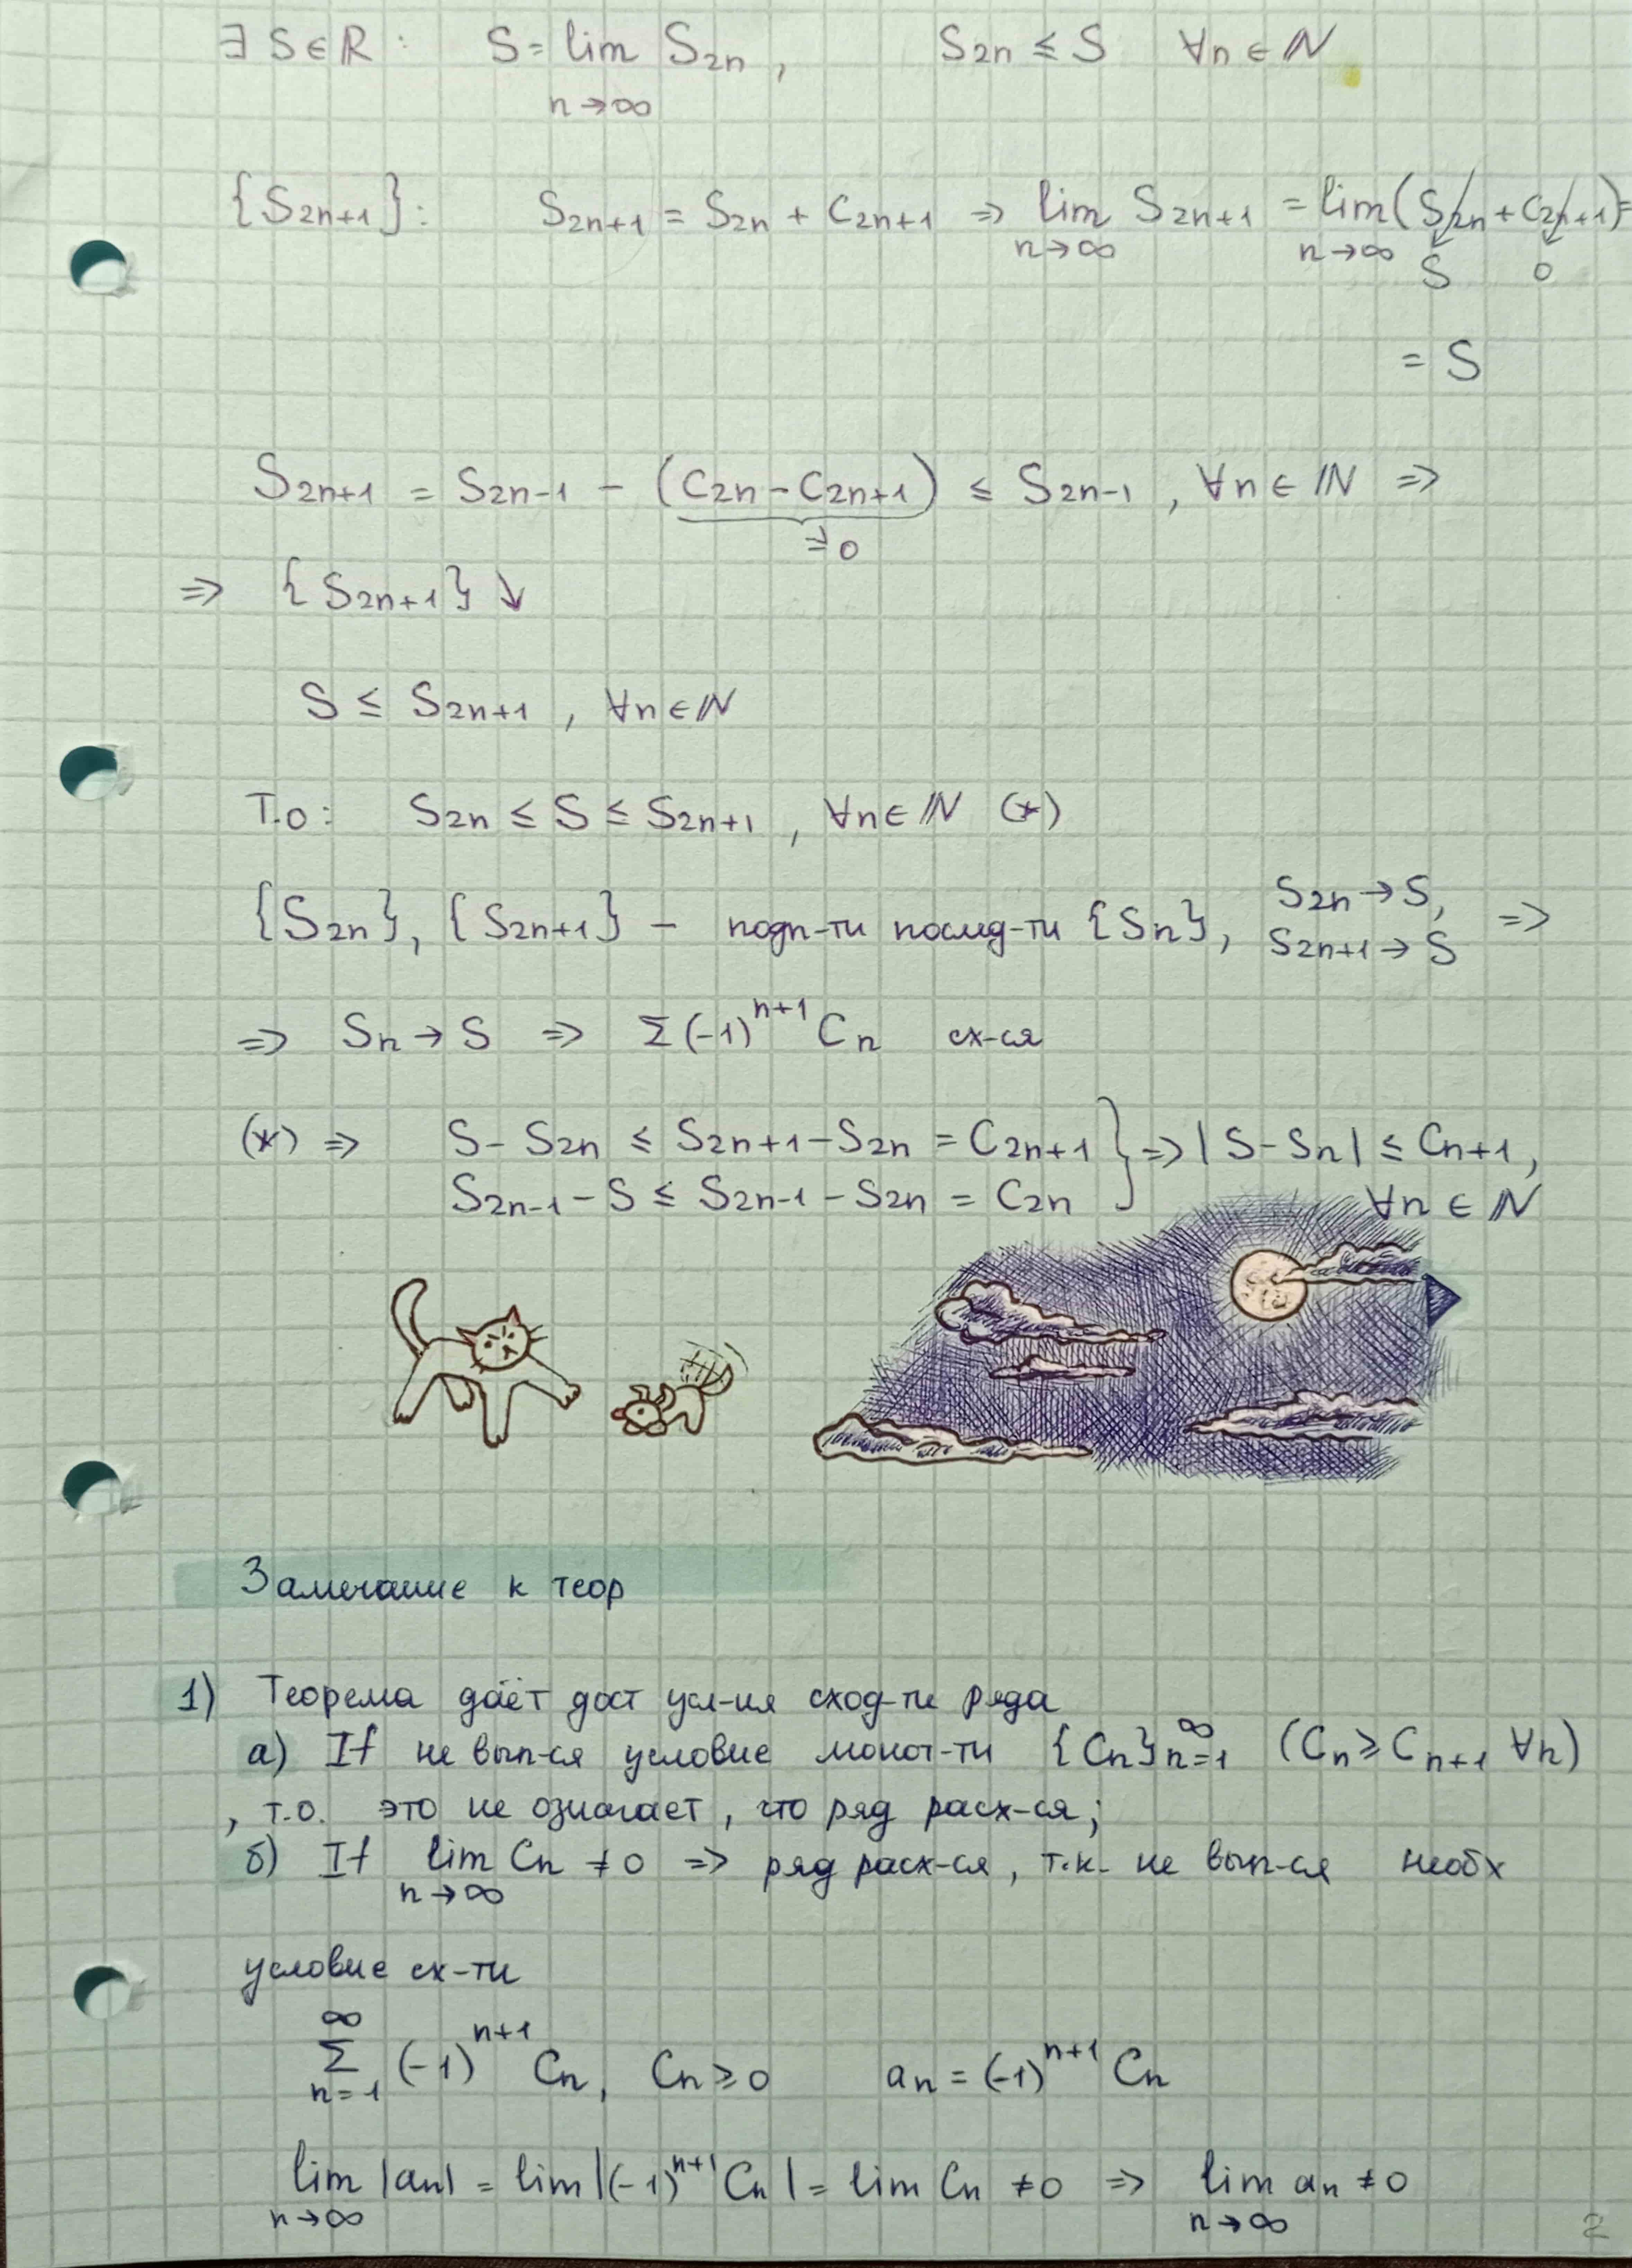 ∃ S ∈ ℝ : S = lim S₂ₙ , S₂ₙ ≤ S ∀n ∈ ℕ
n→∞
{S₂ₙ₊₁}: S₂ₙ₊₁ = S₂ₙ + C₂ₙ₊₁ ⇒ lim S₂ₙ₊₁ = lim (S₂ₙ + C₂ₙ₊₁) =
n→∞ n→∞ S 0
= S
S₂ₙ₊₁ = S₂ₙ₋₁ − (C₂ₙ − C₂ₙ₊₁) ≤ S₂ₙ₋₁ , ∀n ∈ ℕ ⇒
≥ 0
⇒ {S₂ₙ₊₁} ↓
S ≤ S₂ₙ₊₁ , ∀n ∈ ℕ
Т.о: S₂ₙ ≤ S ≤ S₂ₙ₊₁ , ∀n ∈ ℕ (*)
{S₂ₙ}, {S₂ₙ₊₁} – подп-ти послед-ти {Sₙ}, S₂ₙ → S, S₂ₙ₊₁ → S ⇒
⇒ Sₙ → S ⇒ Σ(-1)ⁿ⁺¹ Cₙ сх-ся
(*) ⇒ S − S₂ₙ ≤ S₂ₙ₊₁ − S₂ₙ = C₂ₙ₊₁ } ⇒ |S − Sₙ| ≤ Cₙ₊₁,
S₂ₙ₋₁ − S ≤ S₂ₙ₋₁ − S₂ₙ = C₂ₙ ∀n ∈ ℕ
Замечание к теор
1) Теорема даёт дост усл-ия сход-ти ряда
а) If не вып-ся условие монот-ти {Cₙ}ₙ₌₁^∞ (Cₙ ≥ Cₙ₊₁ ∀n)
, т.о. это не означает, что ряд расх-ся;
б) If lim Cₙ ≠ 0 ⇒ ряд расх-ся, т.к. не вып-ся необх
n→∞
условие сх-ти
∞
Σ (-1)ⁿ⁺¹ Cₙ, Cₙ ≥ 0 aₙ = (-1)ⁿ⁺¹ Cₙ
n=1
lim |aₙ| = lim |(-1)ⁿ⁺¹ Cₙ| = lim Cₙ ≠ 0 ⇒ lim aₙ ≠ 0
n→∞ n→∞
2